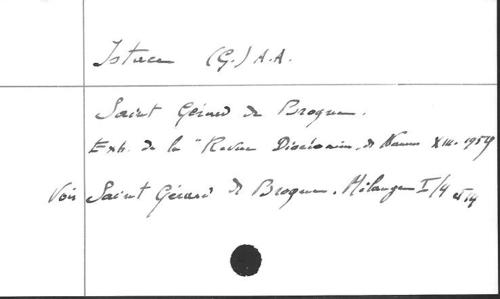 Istace (G.) A.A.
Saint Gérard de Brogne.
Extr. de la "Revue Diocésaine de Namur XIII. 1959
Voir Saint Gérard de Brogne. Mélanges I/4 et 14